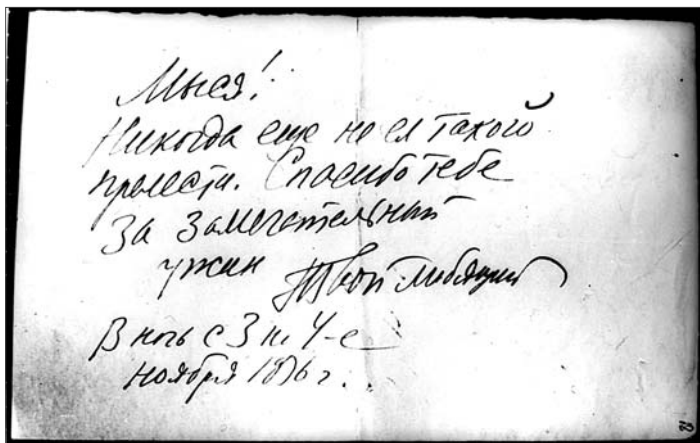 Мыся!
Никогда еще не ел такой
прелести. Спасибо тебе
За замечательный
ужин Твой любящий
В ночь с 3 на 4-е
ноября г.